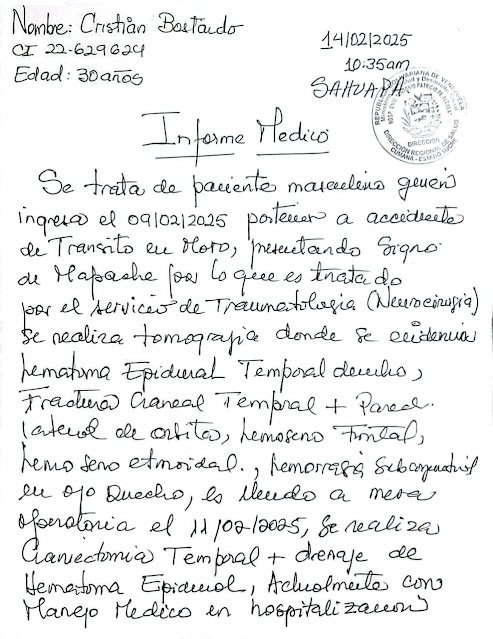 Nombre: Cristian Bastardo
CI 22-629624
Edad: 30 años
14/02/2025
10:35am
SAHUAPA
REPUBLICA BOLIVARIANA DE VENEZUELA
DIRECCIÓN
DIRECCIÓN REGIONAL DE SALUD
CUMANÁ - ESTADO SUCRE
Informe Medico
Se trata de paciente masculino quien
ingresa el 09/02/2025 posterior a accidente
de Transito en Moto, presentando Signo
de Mapache por lo que es tratado
por el servicio de Traumatologia (Neurocirugia)
Se realiza tomografia donde se evidencia
hematoma Epidural Temporal derecho,
Fractura Craneal Temporal + Pared
lateral de orbita, hemoseno Frontal,
hemoseno etmoidal., hemorragia Subconjuntival
en ojo Derecho, es llevado a mesa
operatoria el 11/02/2025, se realiza
Craniectomia Temporal + drenaje de
Hematoma Epidural, Actualmente con
Manejo Medico en hospitalizacion